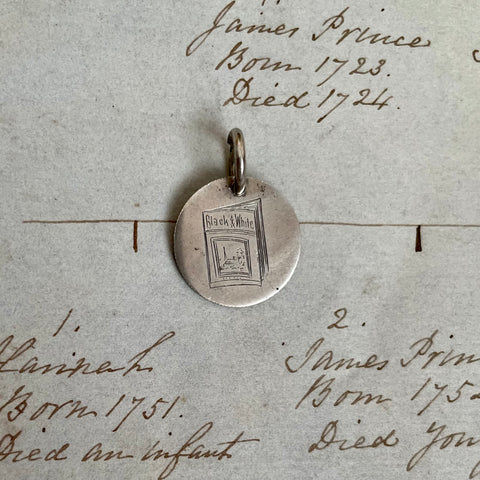 James Prince
Born 1723.
Died 1724.
Black & White
1.
Hannah
Born 1751.
Died an infant
2.
James Prin
Born 175
Died You